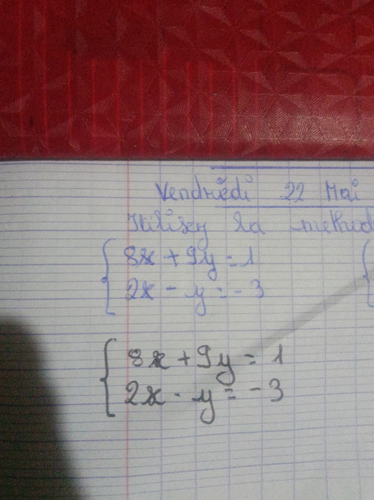 Vendredi 22 Mai
Utilisez la method
8x + 9y = 1
2x - y = -3
8x + 9y = 1
2x - y = -3